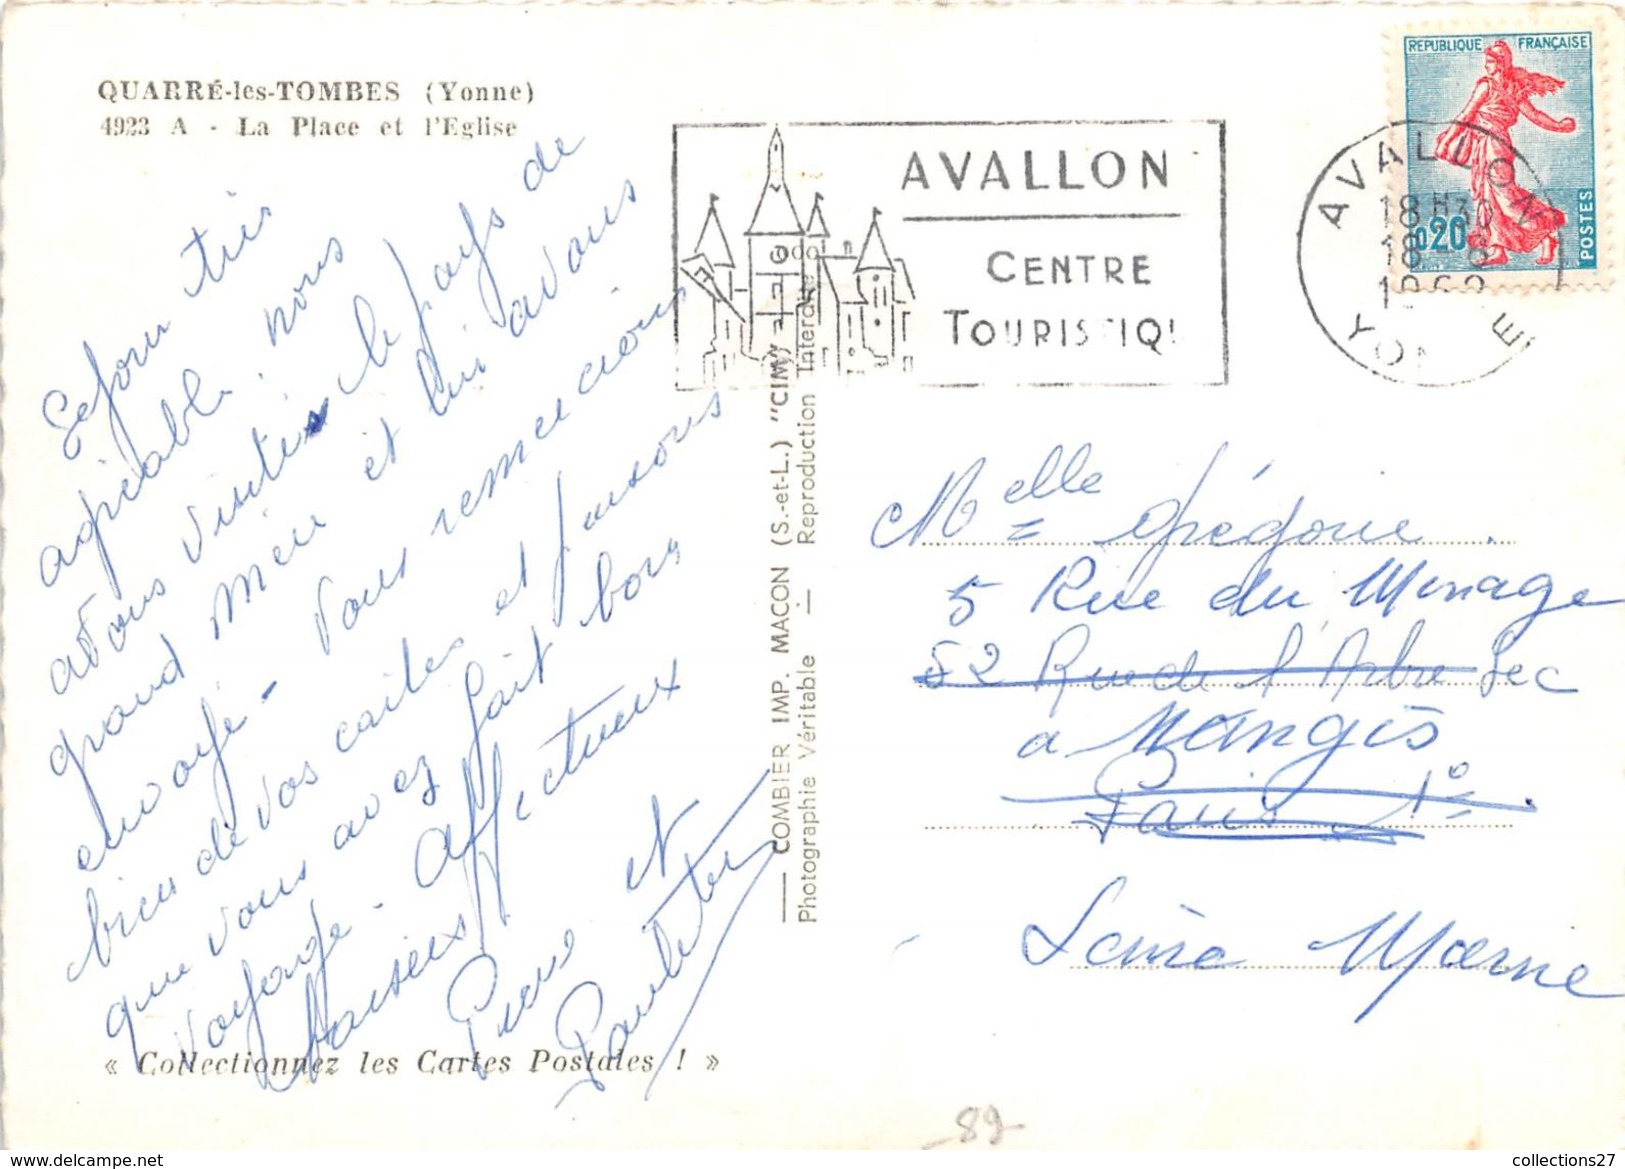 QUARRÉ-les-TOMBES (Yonne)
4923 A - La Place et l'Eglise
Séjour très
agréable. nous
avons visités le pays de
grand mère et lui avons
envoyé - Vous remercions
bien de vos cartes et pensons
que vous avez fait bon
voyage - affectueux
baisers
Pierre et
Paulette
« Collectionnez les Cartes Postales ! »
COMBIER IMP. MACON (S.-et-L.) "CIM"
Photographie Véritable — Reproduction Interdite
AVALLON
CENTRE
TOURISTIQU
REPUBLIQUE FRANÇAISE
0,20
POSTES
AVALLON
18H30
18-8
YONNE
Melle Grégoire.
5 Rue du Minage
52 Rue de l'Arbre Sec
à Nangis
Paris 1°
Seine Marne
89
collections27
delcampe.net